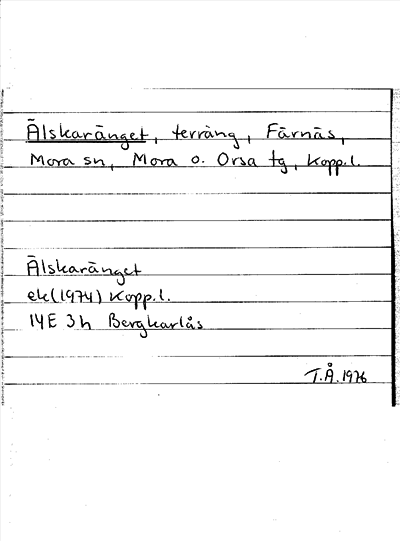 Älskaränget, terräng, Färnäs,
Mora sn, Mora o. Orsa tg, Kopp.l.
Älskaränget
ek(1974) Kopp.l.
14E 3h Bergkarlås
T.Å. 1976